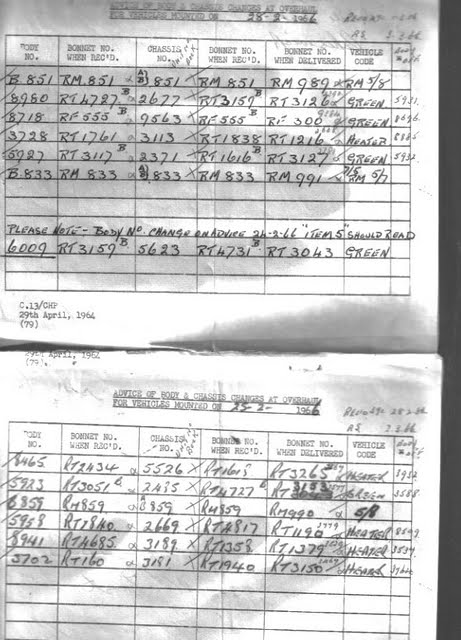 ADVICE OF BODY & CHASSIS CHANGES AT OVERHAUL
FOR VEHICLES MOUNTED ON 28-2- 1966
BODY NO. BONNET NO. WHEN REC'D. CHASSIS NO. BONNET NO. WHEN REC'D. BONNET NO. WHEN DELIVERED VEHICLE CODE
B.851 RM 851 851 RM 851 RM 989 RM 5/8
8980 RT 4727 B 2677 RT 3159 B RT 3126 GREEN
8718 RF 555 B 9563 RF 555 B RF 300 GREEN
3728 RT 1761 3113 RT 1838 RT 1216 HEATER
5927 RT 3117 B 2371 RT 1616 B RT 3127 GREEN 5932
B.833 RM 833 833 RM 833 RM 991 RM 5/7
PLEASE NOTE - BODY NO. CHANGE ON ADVICE 24-2-66 "ITEM 5" SHOULD READ
6009 RT 3159 B 5623 RT 4731 B RT 3043 GREEN
C.13/CHP
29th April, 1964
(79)
29th April, 1964
(79)
ADVICE OF BODY & CHASSIS CHANGES AT OVERHAUL
FOR VEHICLES MOUNTED ON 25-2- 1966
BODY NO. BONNET NO. WHEN REC'D. CHASSIS NO. BONNET NO. WHEN REC'D. BONNET NO. WHEN DELIVERED VEHICLE CODE
8465 RT2434 5526 RT1618 RT3265 HEATER
5923 RT3051 2485 RT4727 B GREEN 3588
8859 RM859 A 859 RM859 RM990 5/8
5958 RT1840 2669 RT4817 RT1190 HEATER
8941 RT4685 3189 RT1358 RT1379 HEATER
3702 RT160 3181 RT1940 RT3150 HEATER